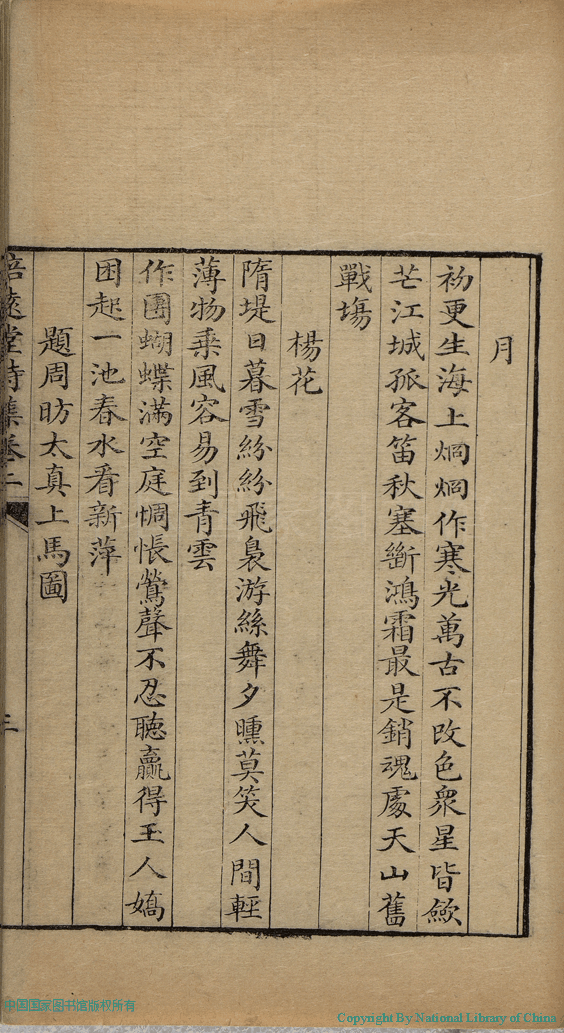 月
初更生海上烱烱作寒光萬古不改色衆星皆歛
芒江城孤客笛秋塞斷鴻霜最是銷魂處天山舊
戰塲
楊花
隋堤日暮雪紛紛飛裊游絲舞夕曛莫笑人間輕
薄物乗風容易到青雲
作團蝴蝶滿空庭惆悵鶯聲不忍聴贏得玉人嬌
困起一池春水看新萍
題周昉太真上馬圖
培遠堂詩集卷二
三
中国国家图书馆版权所有
Copyright By National Library of China